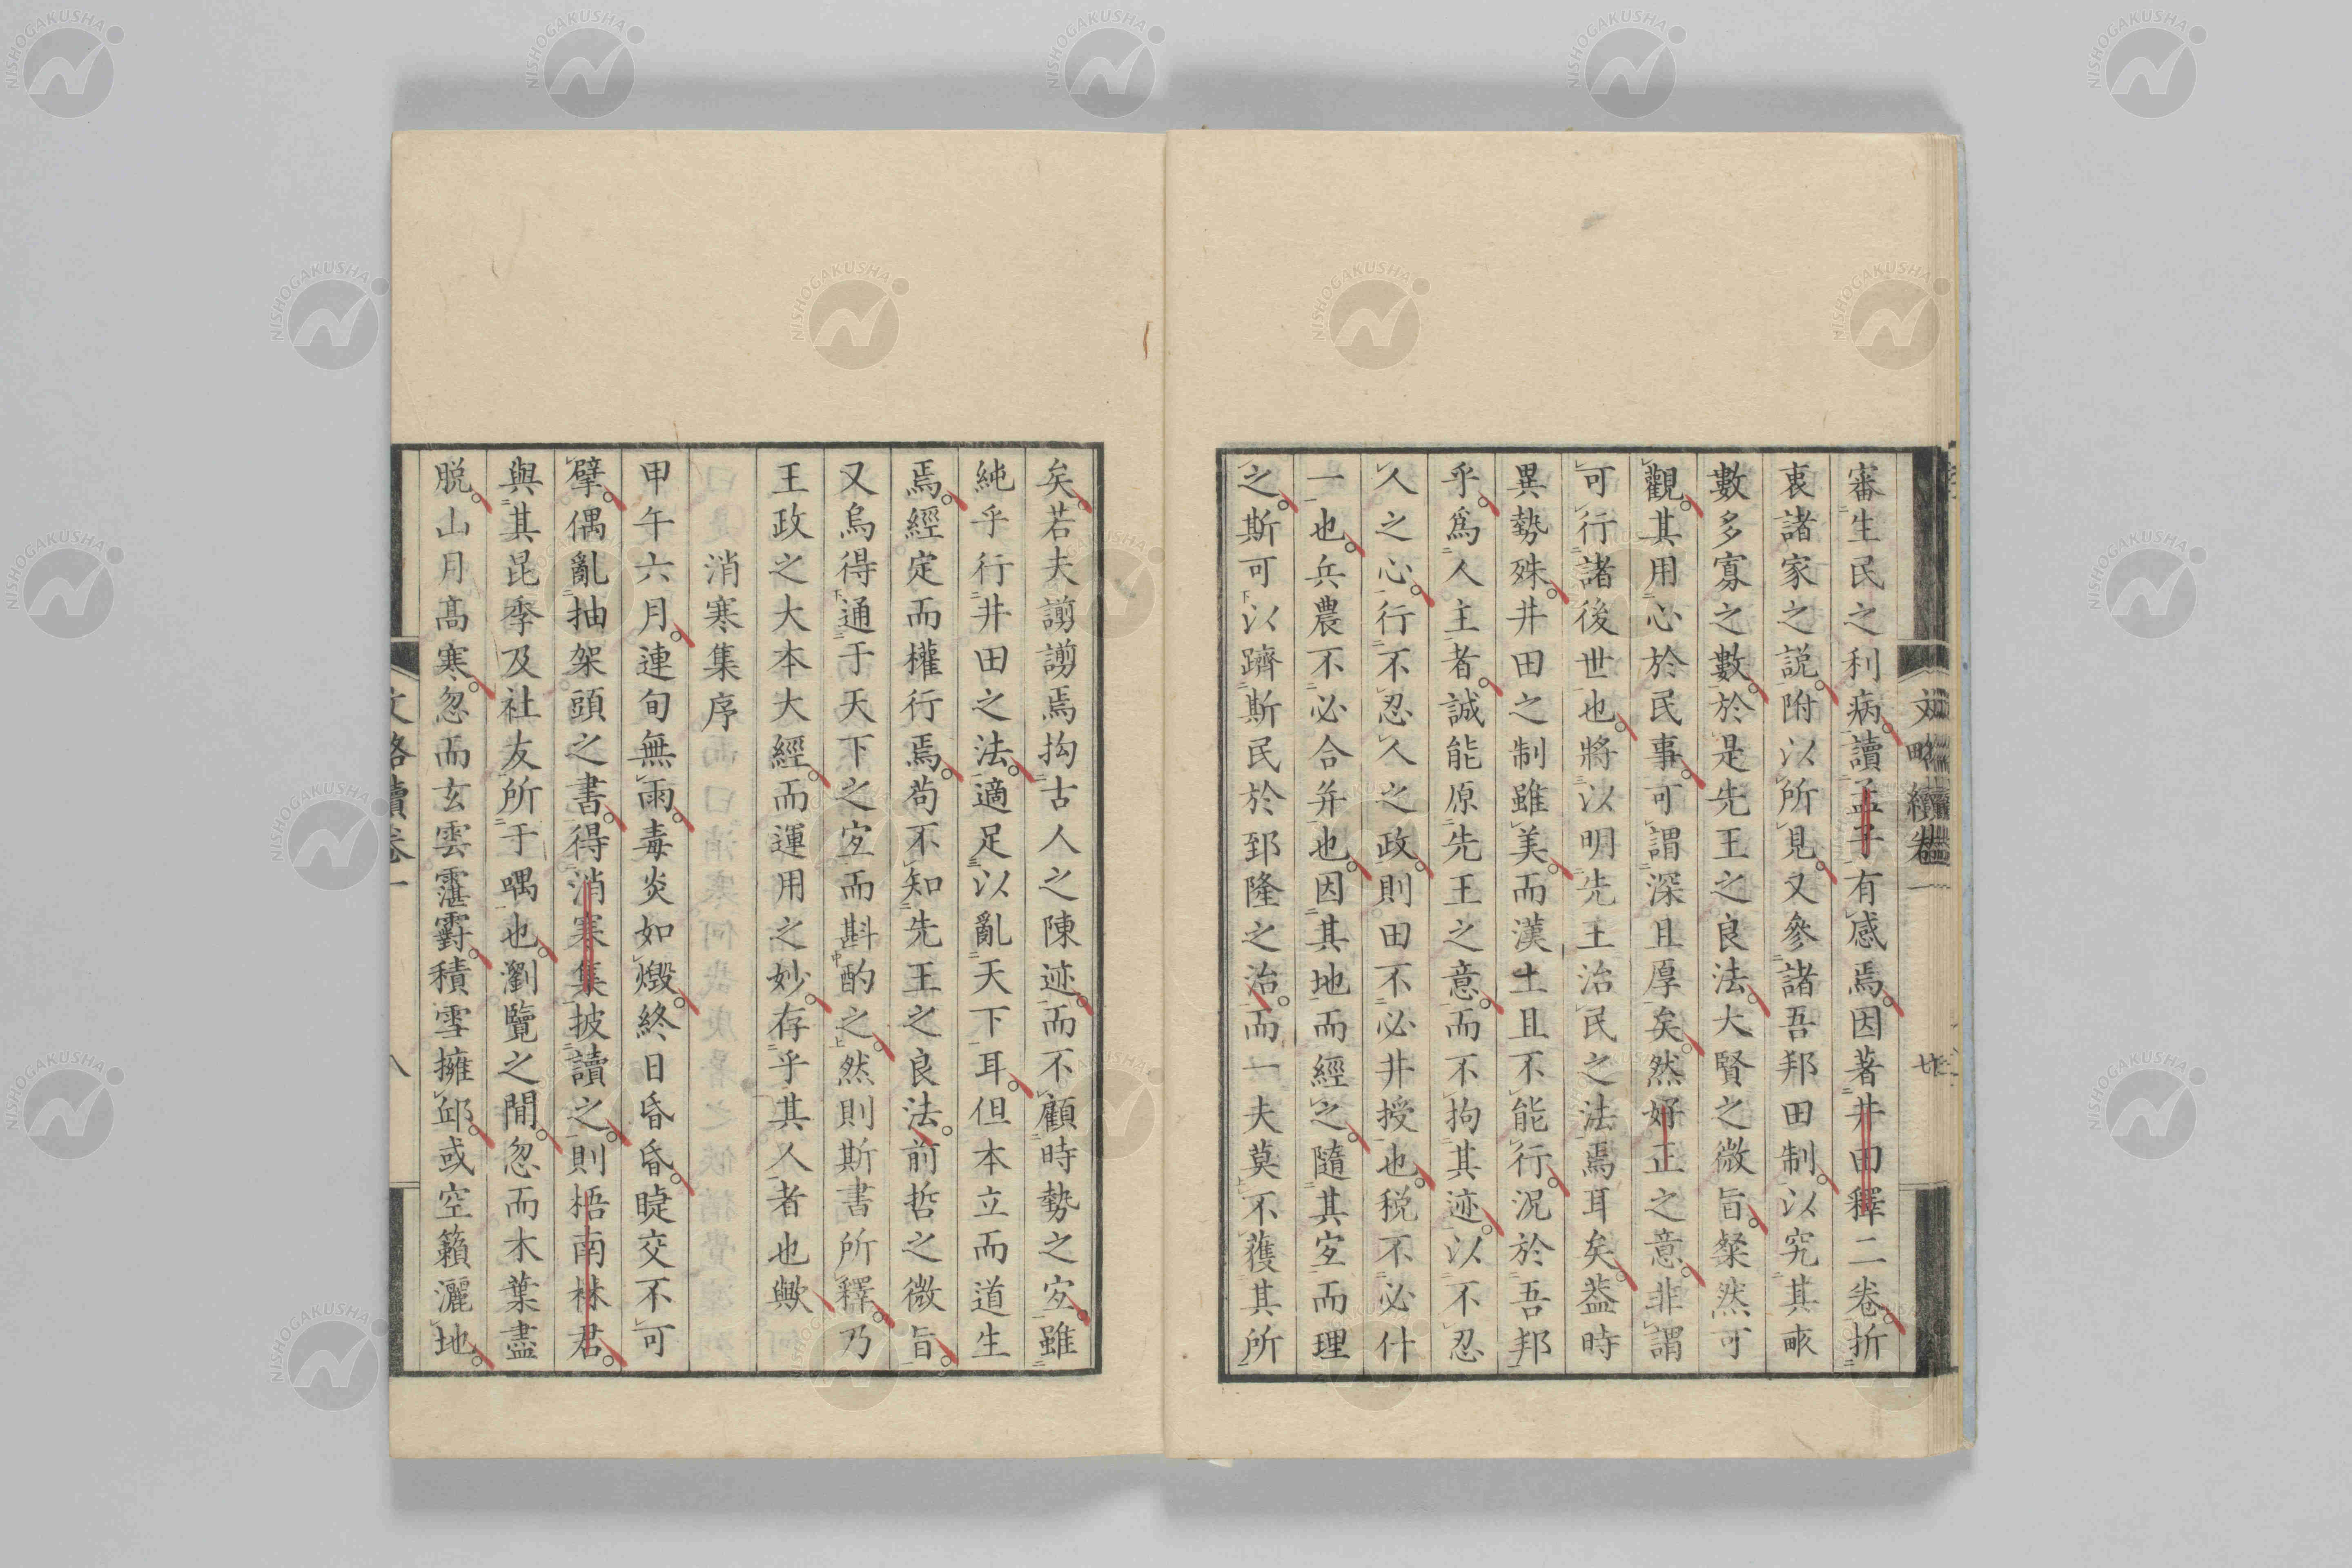 審生民之利病讀孟子有感焉因著井田釋二卷折
衷諸家之説附以所見又參諸吾邦田制以究其畞
數多寡之數於是先王之良法大賢之微旨粲然可
觀其用心於民事可謂深且厚矣然好正之意非謂
可行諸後世也將以明先王治民之法焉耳矣葢時
異勢殊井田之制雖美而漢土且不能行況於吾邦
乎爲人主者誠能原先王之意而不拘其迹以不忍
人之心行不忍人之政則田不必井授也税不必什
一也兵農不必合并也因其地而經之隨其宐而理
之斯可以躋斯民於郅隆之治而一夫莫不獲其所
矣若夫謭謭焉拘古人之陳迹而不顧時勢之宐雖
純乎行井田之法適足以亂天下耳但本立而道生
焉經定而權行焉苟不知先王之良法前哲之微旨
又烏得通于天下之宐而斟酌之然則斯書所釋乃
王政之大本大經而運用之妙存乎其人者也歟
消寒集序
甲午六月連旬無雨毒炎如燬終日昏昏睫交不可
擘偶亂抽架頭之書得消寒集披讀之則梧南林君
與其昆季及社友所于喁也瀏覽之間忽而木葉盡
脱山月高寒忽而玄雲霮䨴積雪擁邱或空籟灑地
文略續卷一
八